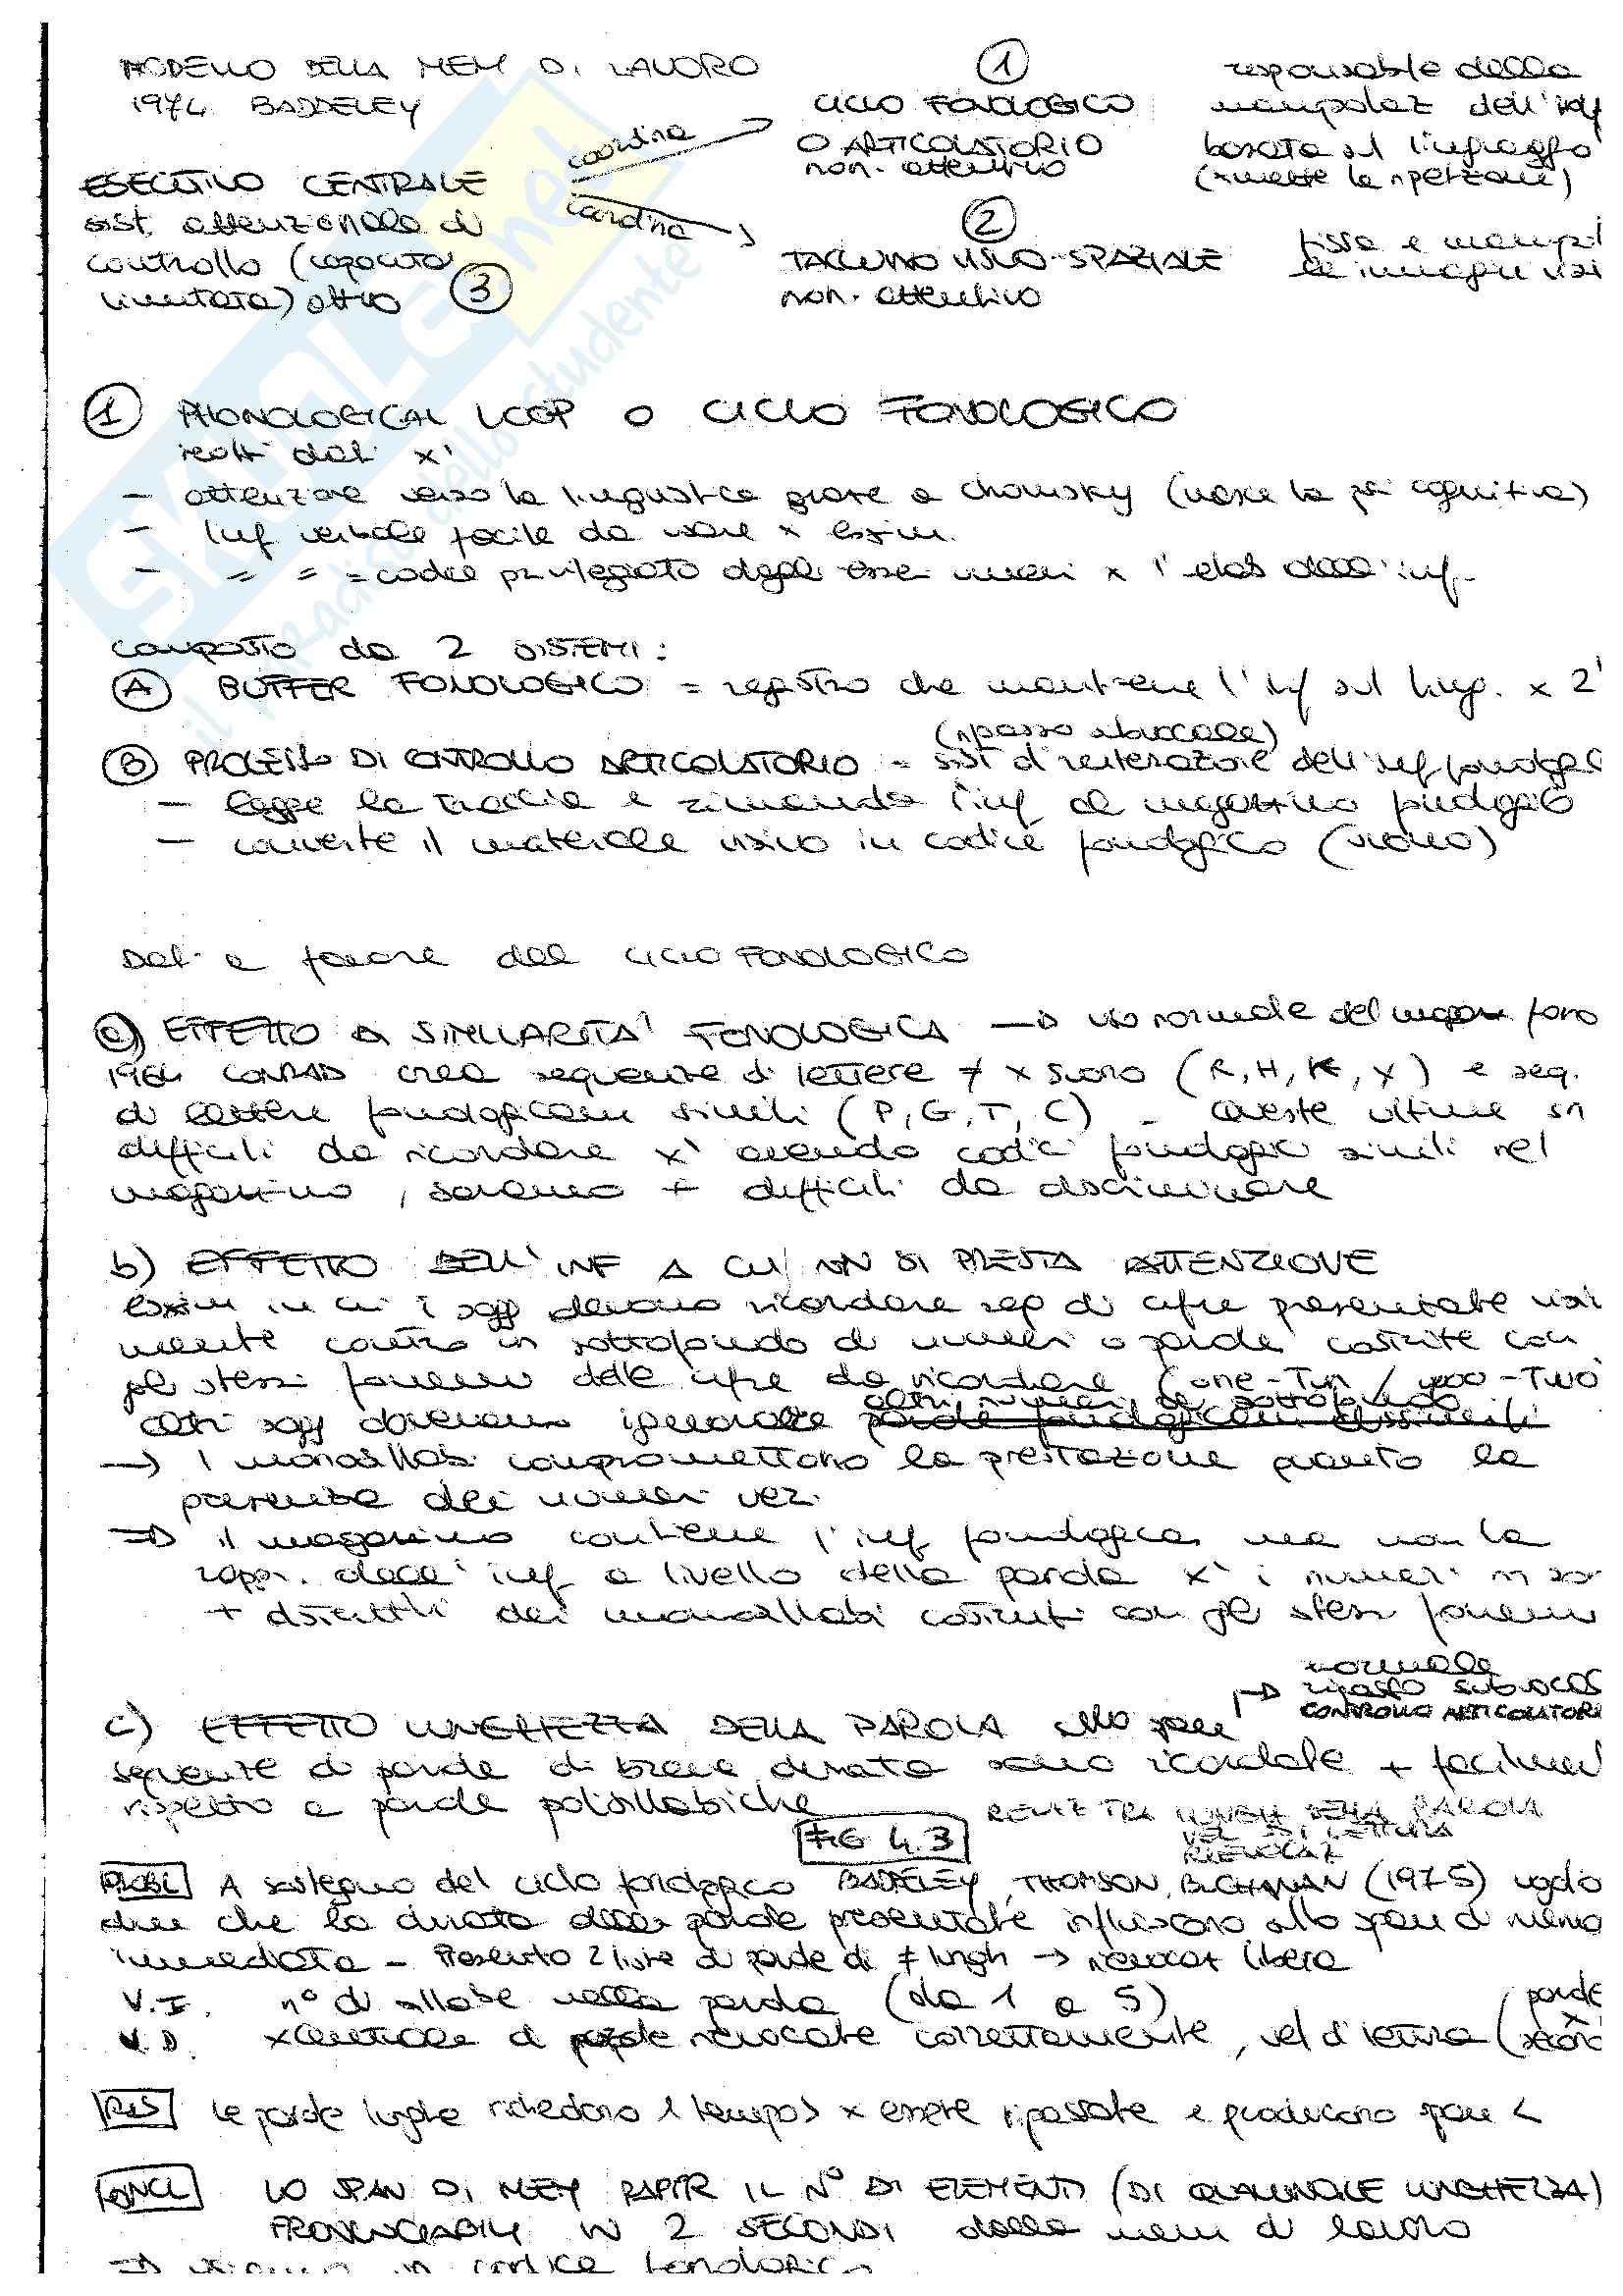 MODELLO DELLA MEM DI LAVORO
1974 BADDELEY
ESECUTIVO CENTRALE
sist. attenzionale di
controllo (capacità
limitata) attivo 3
coordina
coordina
1
CICLO FONOLOGICO
O ARTICOLATORIO
non. attentivo
responsabile della
manipolaz dell'inf
basata sul linguaggio
(xmette la ripetzione)
2
TACCUINO VISUO-SPAZIALE
non. attentivo
fissa e manipol
le immagini visi
1 PHONOLOGICAL LOOP O CICLO FONOLOGICO
molti dati x'
- attenzione verso la linguistica grazie a Chomsky (nasce la psi cognitiva)
- Inf verbale facile da usare x esxim.
- = = = codice privilegiato degli esseri umani x l'elab dell'inf.
composto da 2 SISTEMI:
A BUFFER FONOLOGICO = registro che mantiene l'inf sul ling. x 2'
(ripasso subvocale)
B PROCESSO DI CONTROLLO ARTICOLATORIO = sist d'reiterazione dell'inf fonologica
- legge la traccia e rimanda l'inf al magazzino fonologico
- converte il materiale visivo in codice fonologico (visivo)
Dati a favore del CICLO FONOLOGICO
a) EFFETTO DI SIMILLARITA' FONOLOGICA → uso normale del magazz fono
1964 CONRAD crea sequenze di lettere ≠ x suono (R, H, K, X) e seq.
di lettere fonologicam simili (P, G, T, C) - Queste ultime sn
difficili da ricordare x' avendo codici fonologici simili nel
magazzino, saranno + difficili da discriminare
b) EFFETTO DELL'INF A CUI NN SI PRESTA ATTENZIONE
esxim in cui i sogg devono ricordare seq di cifre presentate visi
mente contro in sottofondo di numeri o parole costruite con
gli stessi fonemi delle cifre da ricordare (one-Tun / woo-TWO
altri numeri di sottofondo
altri sogg dovevano ignorare parole fonologicam dissimili
→ I monosillabi compromettono la prestazione quanto la
presenza dei numeri veri
⇒ il magazzino contiene l'inf fonologica, ma non la
rappr. dell'inf a livello della parola x' i numeri nn so
+ disturbi dei monosillabi costruiti con gli stessi fonemi
normale
→ ripasso subvocal
CONTROLLO ARTICOLATORI
c) EFFETTO LUNGHEZZA DELLA PAROLA sullo span
sequenze di parole di breve durata sono ricordate + facilmen
rispetto a parole polisillabiche
RELAZ TRA LUNGH DELLA PAROLA
VEL DI LETTURA
RIEVOCAZ
FIG 4.3
PROBL A sostegno del ciclo fonologico BADDELEY, THOMSON, BUCHANAN (1975) voglio
dire che la durata delle parole presentate influiscono sullo span di memo
immediata - Presento 2 liste di parole di ≠ lungh → rievocaz libera
V.I. n° di sillabe nella parola (da 1 a 5)
V.D. xcentuale di parole rievocate correttamente, vel d'lettura (parole x secono
RIS Le parole lunghe richiedono + tempo x essere ripassate e producono span <
CONCL LO SPAN DI MEM RAPPR IL N° DI ELEMENTI (DI QUALUNQUE LUNGHEZZA)
PRONUNCIABILI IN 2 SECONDI dalla mem di lavoro
in codice fonologico